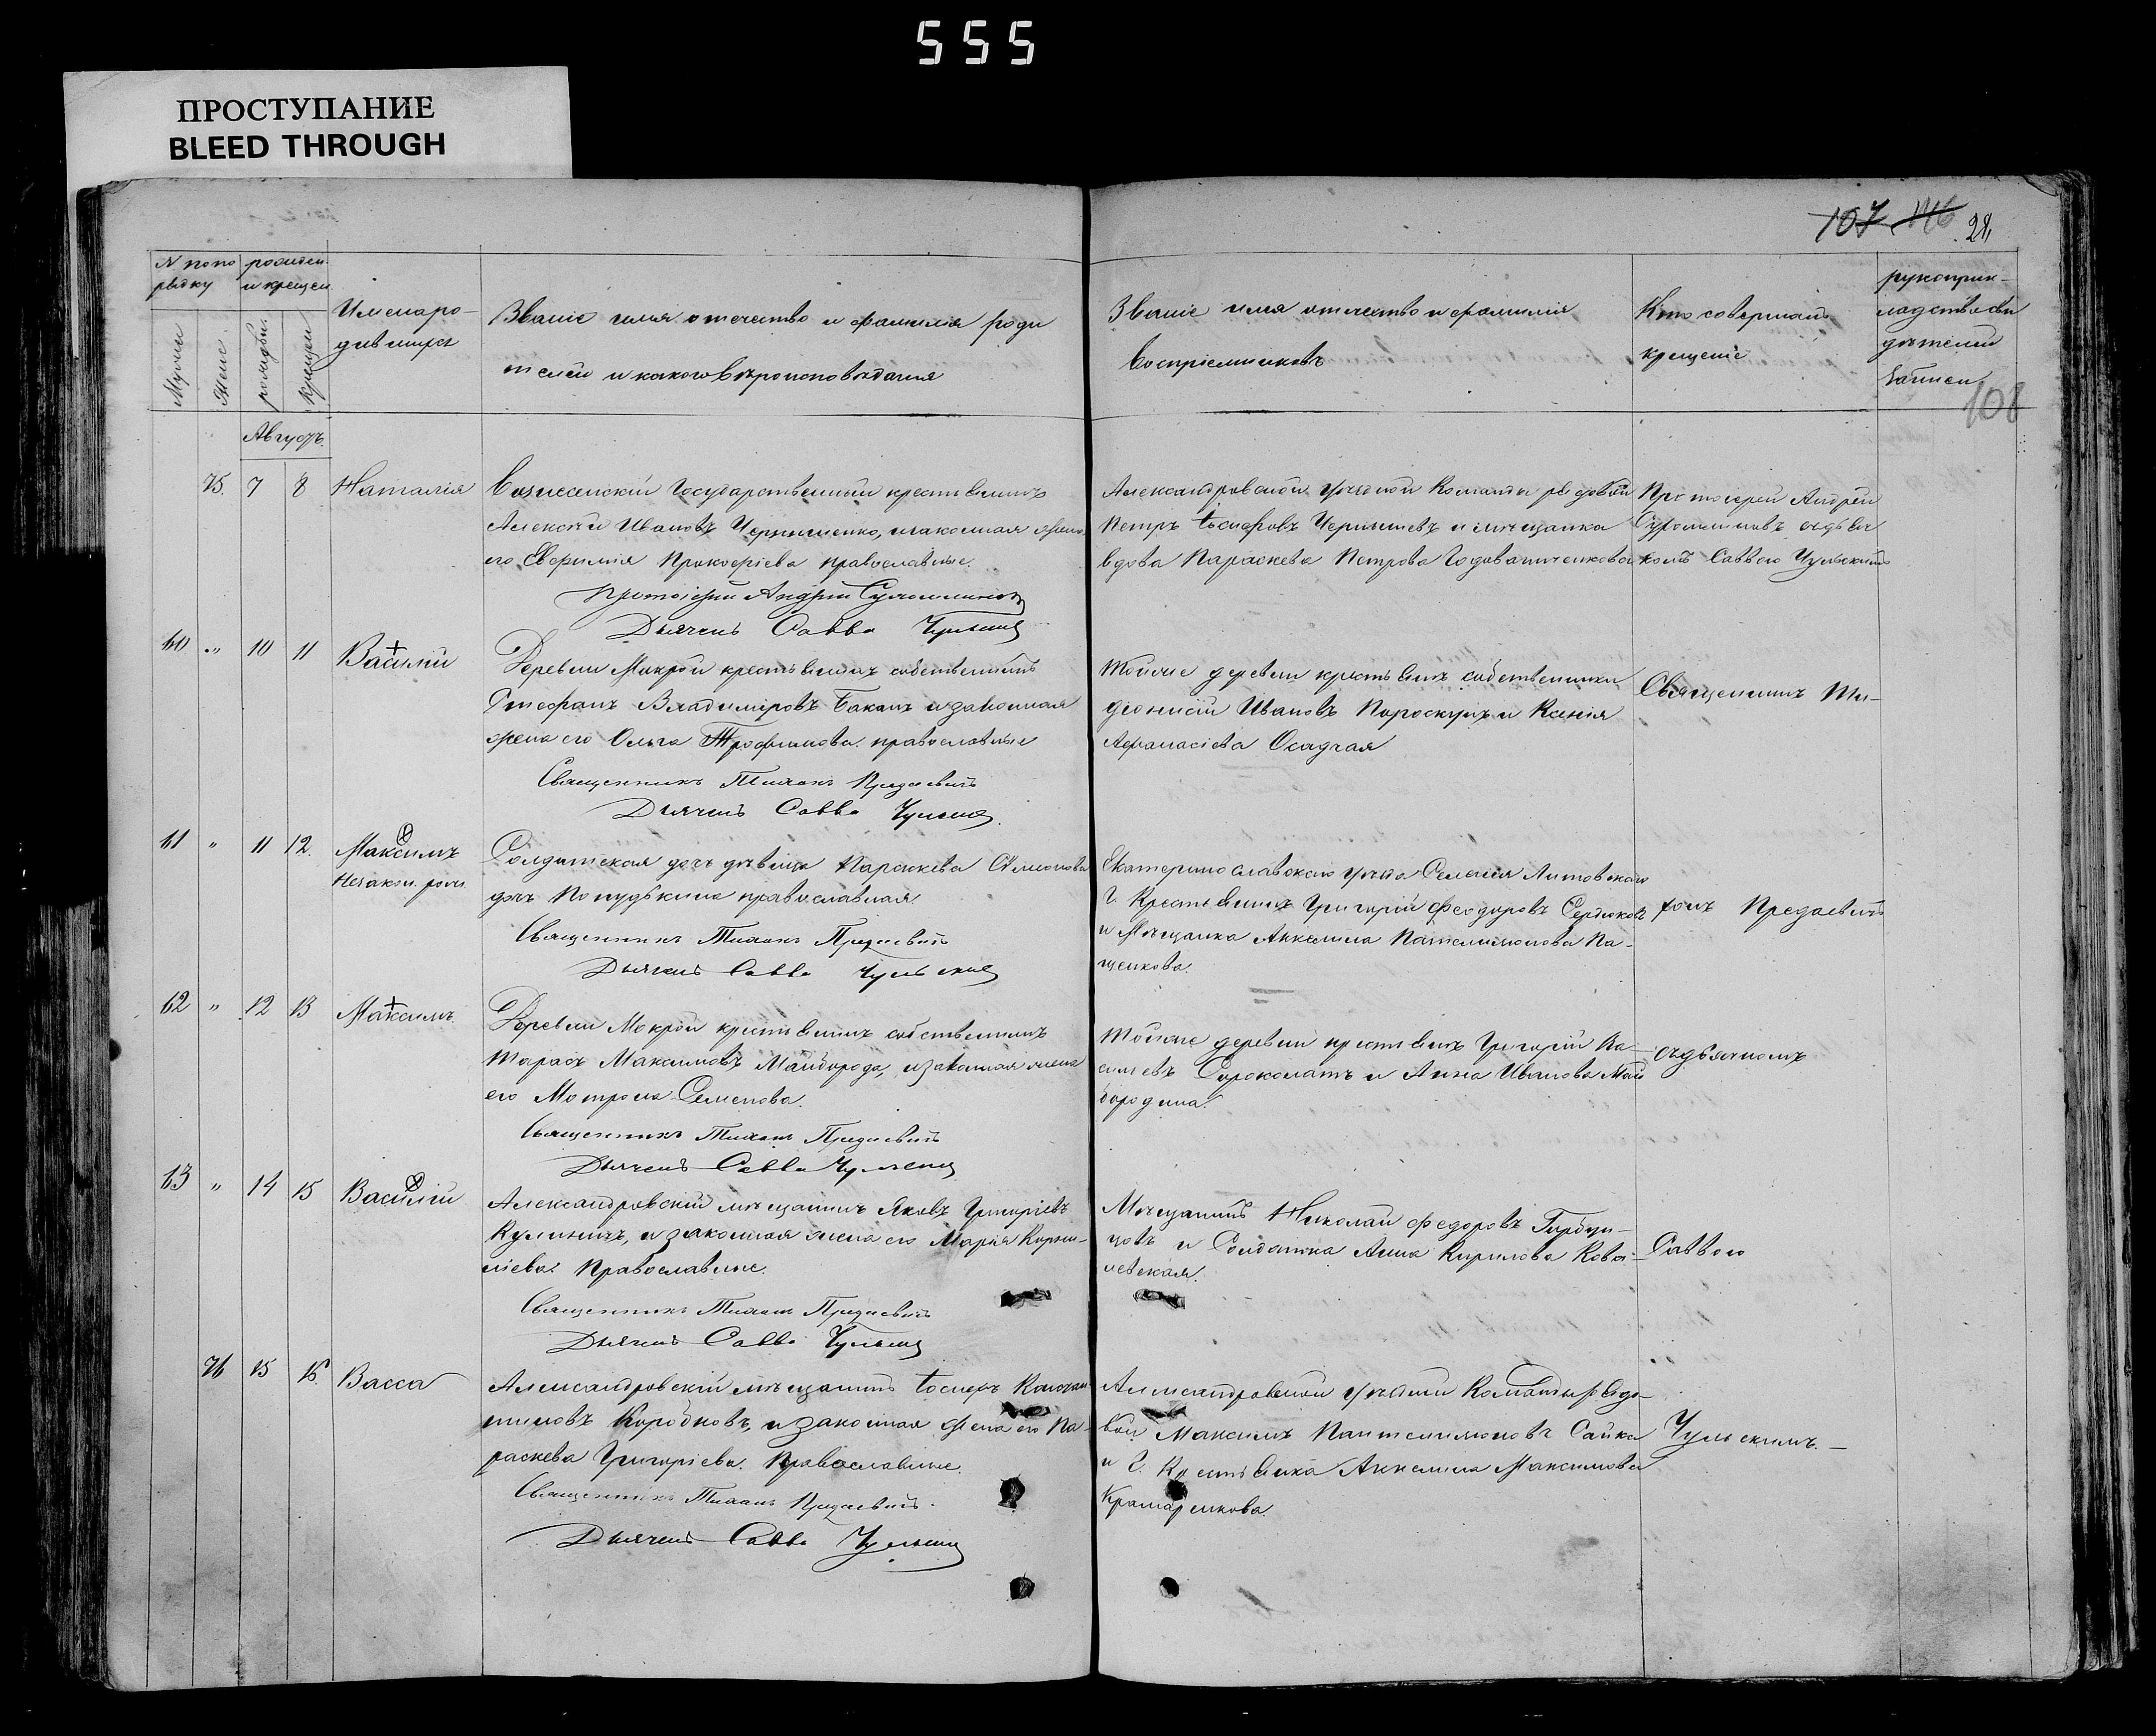 555
ПРОСТУПАНИЕ
BLEED THROUGH
107 116 28,
108
N по по рядку
рожден. и крещен
Мужск
Женс
рожден.
крещен
Имена родившихся
Званіе имя отчество и фамилія роди
телей и какого вѣроисповѣданія
Званіе имя отчество и фамилія
воспріемниковъ
Кто совершалъ
крещеніе
рукоприк-
ладство сви
дѣтелей
записи
Августъ.
75. 7 8 Наталія
Государственный крестьянинъ
Алексѣй Ивановъ законная жена
его Евфимія Прокофіева православные.
Протоіерей Андрей Сухомлиновъ
Дьячекъ Савва Чульскій
Александровской уѣздной Команды рядовой
Петръ Іосифовъ Чернышевъ и мѣщанка
вдова Параскева Петрова
Протоіерей Андрей
Сухомлиновъ съ дьяч
комъ Саввою Чульскимъ
60 " 10 11 Василій
Деревни Мокрой крестьянинъ собственникъ
Стефанъ Владиміровъ Баканъ и законная
жена его Ольга Трофимова православные
Священникъ Тихонъ Предаевичъ
Дьячекъ Савва Чульскій
Тойже деревни крестьянъ собственники
Діонисій Ивановъ и Ксенія
Афанасіева Осадчая
Священникъ Ти-
61 " 11 12. Максимъ
Незакон. рожд.
Солдатская дочь дѣвица Параскева Симонова
православная.
Священникъ Тихонъ Предаевичъ
Дьячекъ Савва Чульскій
Екатеринославскаго уѣзда Селенія Литовскаго
Г. Крестьянинъ Григорій Феодоровъ Сердюковъ
и Мѣщанка Аккелина Пателимонова Па-
щенкова.
хонъ Предаевичъ
62 " 12 13 Максимъ.
Деревни Мокрой крестьянинъ собственникъ
Тарасъ Максимовъ Майборода, и законная жена
его Мотрона Семенова.
Священникъ Тихонъ Предаевичъ
Дьячекъ Савва Чульскій
Тойже деревни крестьянъ Григорій Ва-
сильевъ Сороколатъ и Анна Иванова Май
бородина.
съ дьячкомъ
63 " 14 15 Василій
Александровскій мѣщанинъ Яковъ Григоріевъ
Кулиничъ, и законная жена его Марія Корни-
ліева. Православные.
Священникъ Тихонъ Предаевичъ
Дьячекъ Савва Чульскій
Мѣщанинъ Николай Федоровъ Горбун-
цовъ и Солдатка Анна Кирилова Кова-
левская.
Саввою
76 15 16. Васса
Александровскій мѣщанинъ Іосифъ Констан
тиновъ Коробковъ, и законная жена его Па-
раскева Григоріева. Православные.
Священникъ Тихонъ Предаевичъ.
Дьячекъ Савва Чульскій
Александровской уѣздной Команды рядо-
вой Максимъ Пантелимоновъ Сайка
и Г. Крестьянка Аккелина Максимова
Крамаренкова.
Чульскимъ.–